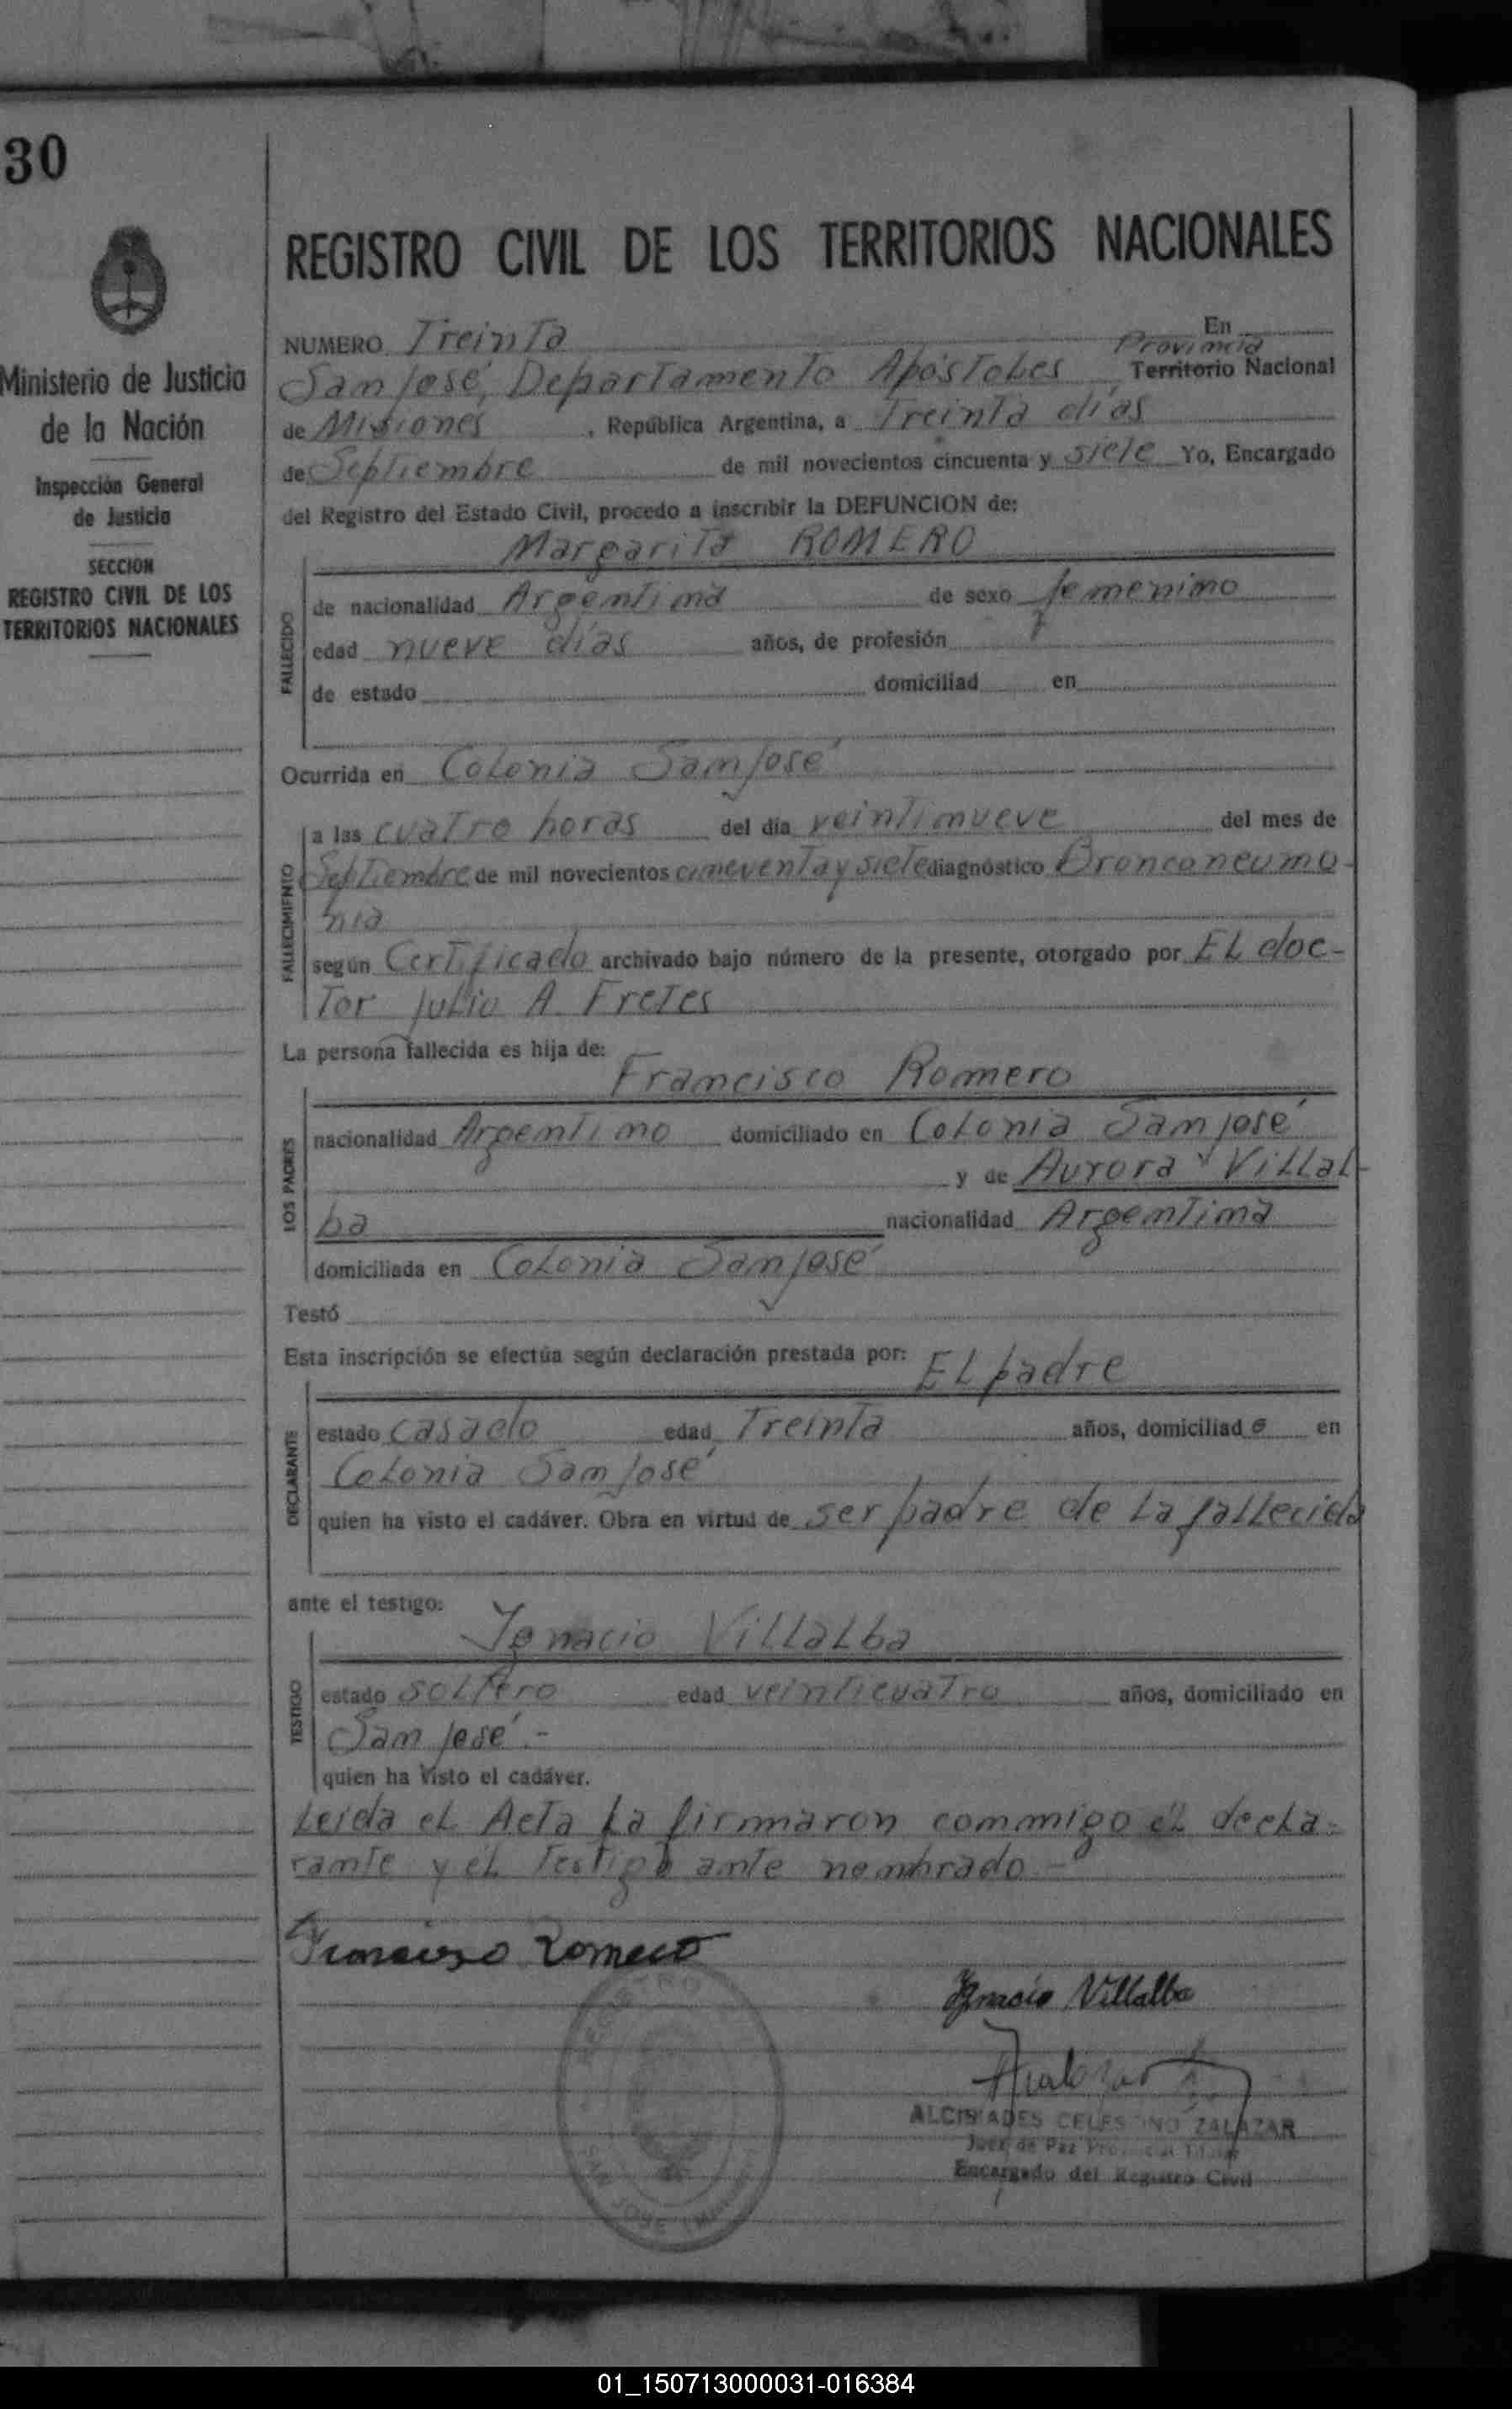 30
Ministerio de Justicia
de la Nación
Inspección General
de Justicia
SECCION
REGISTRO CIVIL DE LOS
TERRITORIOS NACIONALES
REGISTRO CIVIL DE LOS TERRITORIOS NACIONALES
NUMERO Treinta En
Provincia
San José, Departamento Apóstoles Territorio Nacional
de Misiones, República Argentina, a Treinta días
de Septiembre de mil novecientos cincuenta y siete Yo, Encargado
del Registro del Estado Civil, procedo a inscribir la DEFUNCION de:
Margarita ROMERO
FALLECIDO
de nacionalidad Argentina de sexo femenino
edad nueve días años, de profesión
de estado domiciliad en
Ocurrida en Colonia San José
FALLECIMIENTO
a las cuatro horas del día veintinueve del mes de
Septiembre de mil novecientos cincuenta y siete diagnóstico Bronconeumo-
nia
según Certificado archivado bajo número de la presente, otorgado por El doc-
tor Julio A. Fretes
La persona fallecida es hija de:
Francisco Romero
LOS PADRES
nacionalidad Argentino domiciliado en Colonia San José
y de Aurora Villal-
ba nacionalidad Argentina
domiciliada en Colonia San José
Testó
Esta inscripción se efectúa según declaración prestada por: El padre
DECLARANTE
estado casado edad Treinta años, domiciliad o en
Colonia San José
quien ha visto el cadáver. Obra en virtud de ser padre de la fallecida
ante el testigo:
Ignacio Villalba
TESTIGO
estado soltero edad veinticuatro años, domiciliado en
San José.-
quien ha visto el cadáver.
Leída el Acta la firmaron conmigo el decla-
rante y el testigo ante nombrado.-
Francisco Romero
Ignacio Villalba
ALCIBIADES CELESTINO ZALAZAR
Juez de Paz
Encargado del Registro Civil
SAN JOSE
01_150713000031-016384